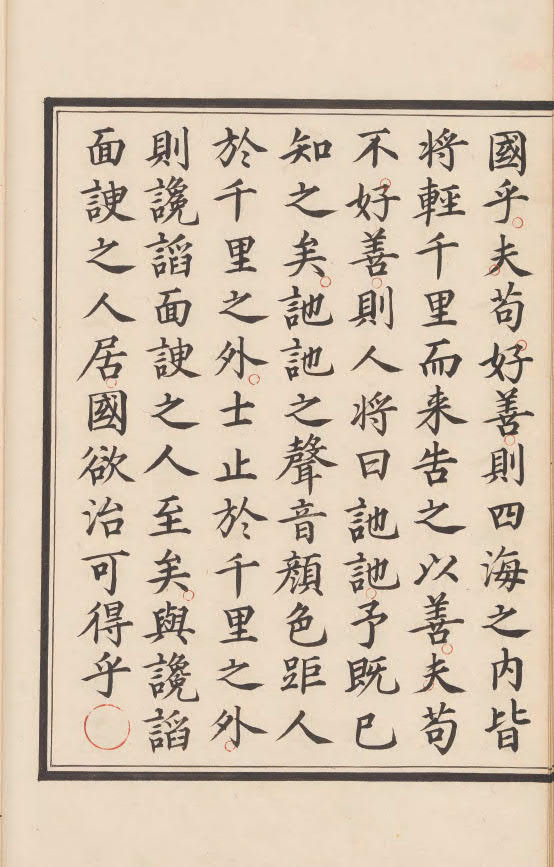 國乎夫苟好善則四海之内皆
将輕千里而来告之以善夫苟
不好善則人将曰訑訑予既已
知之矣訑訑之聲音顔色距人
於千里之外士止於千里之外
則讒謟面諛之人至矣與讒謟
面諛之人居國欲治可得乎